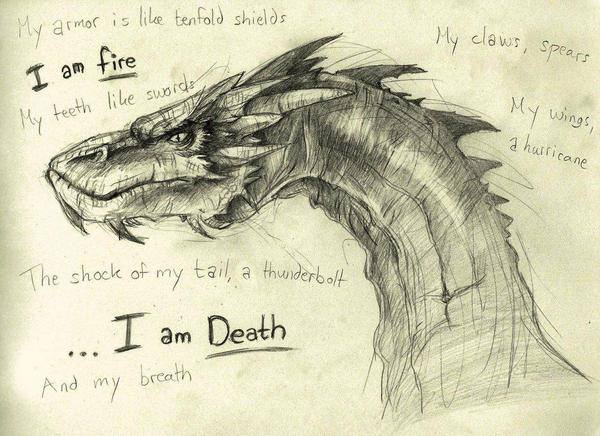 My armor is like tenfold shields
I am fire
My teeth like swords
My claws, spears
My wings,
a hurricane
The shock of my tail, a thunderbolt
... I am Death
And my breath